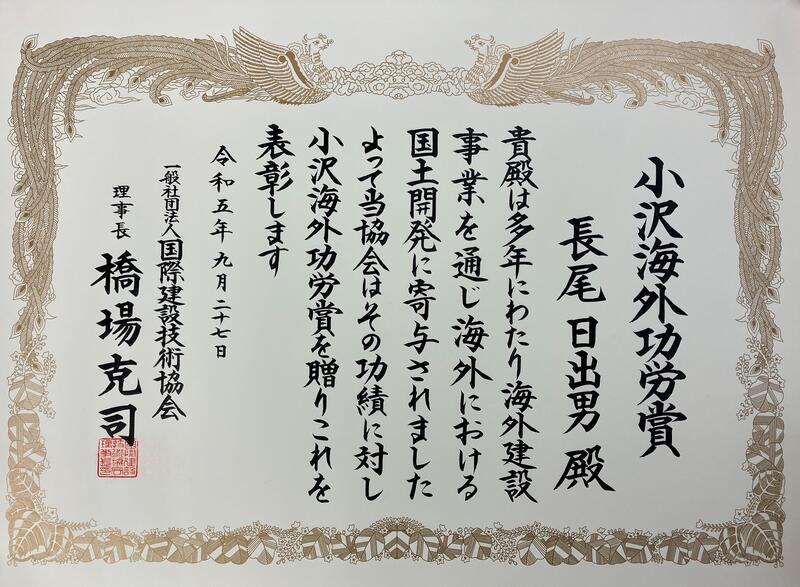 小沢海外功労賞
長尾日出男殿
貴殿は多年にわたり海外建設
事業を通じ海外における
国土開発に寄与されました
よって当協会はその功績に対し
小沢海外功労賞を贈りこれを
表彰します
令和五年九月二十七日
一般社団法人国際建設技術協会
理事長 橋場克司